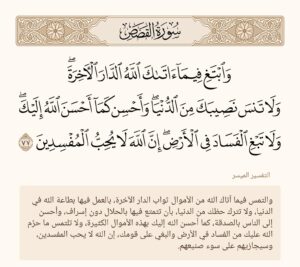 سُورَةُ القَصَصِ
وَٱبْتَغِ فِيمَآ ءَاتَىٰكَ ٱللَّهُ ٱلدَّارَ ٱلْأَخِرَةَۖ
وَلَا تَنسَ نَصِيبَكَ مِنَ ٱلدُّنْيَاۖ وَأَحْسِن كَمَآ أَحْسَنَ ٱللَّهُ إِلَيْكَۖ
وَلَا تَبْغِ ٱلْفَسَادَ فِي ٱلْأَرْضِۖ إِنَّ ٱللَّهَ لَا يُحِبُّ ٱلْمُفْسِدِينَ ٧٧
التفسير الميسر
والتمس فيما آتاك الله من الأموال ثواب الدار الآخرة، بالعمل فيها بطاعة الله في
الدنيا، ولا تترك حظك من الدنيا، بأن تتمتع فيها بالحلال دون إسراف، وأحسن
إلى الناس بالصدقة، كما أحسن الله إليك بهذه الأموال الكثيرة، ولا تلتمس ما حرَّم
الله عليك من الفساد في الأرض والبغي على قومك، إن الله لا يحب المفسدين،
وسيجازيهم على سوء صنيعهم.